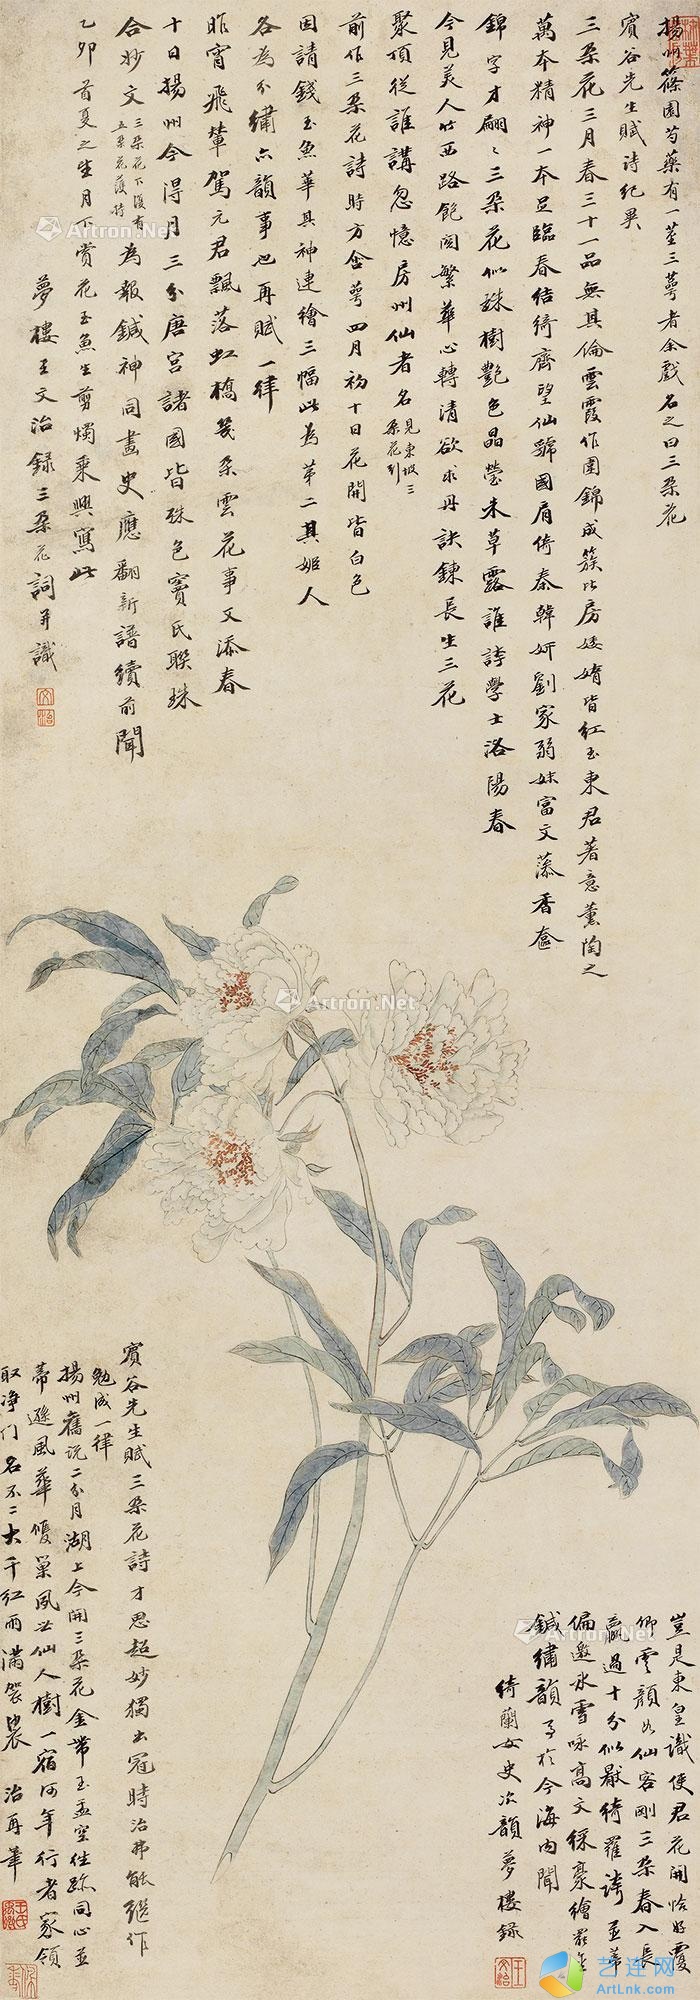 揚州篠園芍藥有一莖三萼者余戲名之曰三朵花
賓谷先生賦詩紀異
三朵花三月春三十一品無其倫雲霞作圍錦成簇比房媱嫷皆紅玉東君著意薰陶之
萬本精神一本足臨春結綺齊望仙虢國肩倚秦韓妍劉家弱妹富文藻香奩
錦字才翩〻三朵花似珠樹艷色晶瑩朱草露誰誇學士洛陽春
今見美人竹西路飽閱繁華心轉清欲求丹訣鍊長生三花
聚頂從誰講忽憶房州仙者名見東坡三朵花引
前作三朵花詩時方含萼四月初十日花開皆白色
因請錢玉魚華其神連繪三幅此為苐二其姬人
各為分繡亦韻事也再賦一律
昨宵飛輦駕元君飄落虹橋幾朵雲花事又添春
十日揚州今得月三分唐宮諸國皆殊色竇氏聯珠
合妙文三朵花下復有五朵花護持為報鍼神同畫史應翻新譜續前聞
乙卯首夏之生月下賞花玉魚生剪燭乘興寫此
夢樓王文治錄三朵花詞并識
賓谷先生賦三朵花詩才思超妙獨出冠時治弗能繼作
勉成一律
揚州舊說二分月湖上今開三朵花金帶玉盂空往跡同心並
蒂遜風華優巢夙世仙人樹一宿何年行者家領
取淨門名不二大千紅雨滿袈裟 治再筆
豈是東皇識使君花開恰好覆
卿雲顏如仙客剛三朵春入長
贏過十分似厭綺羅誇並蒂
偏邀冰雪咏高文綵豪繪罷金
鍼繡韻事於今海內聞
綺蘭女史次韻夢樓錄
Artron.Net
Artron.Net
Artron.Net
Artron.Net
艺连网
ArtLink.com